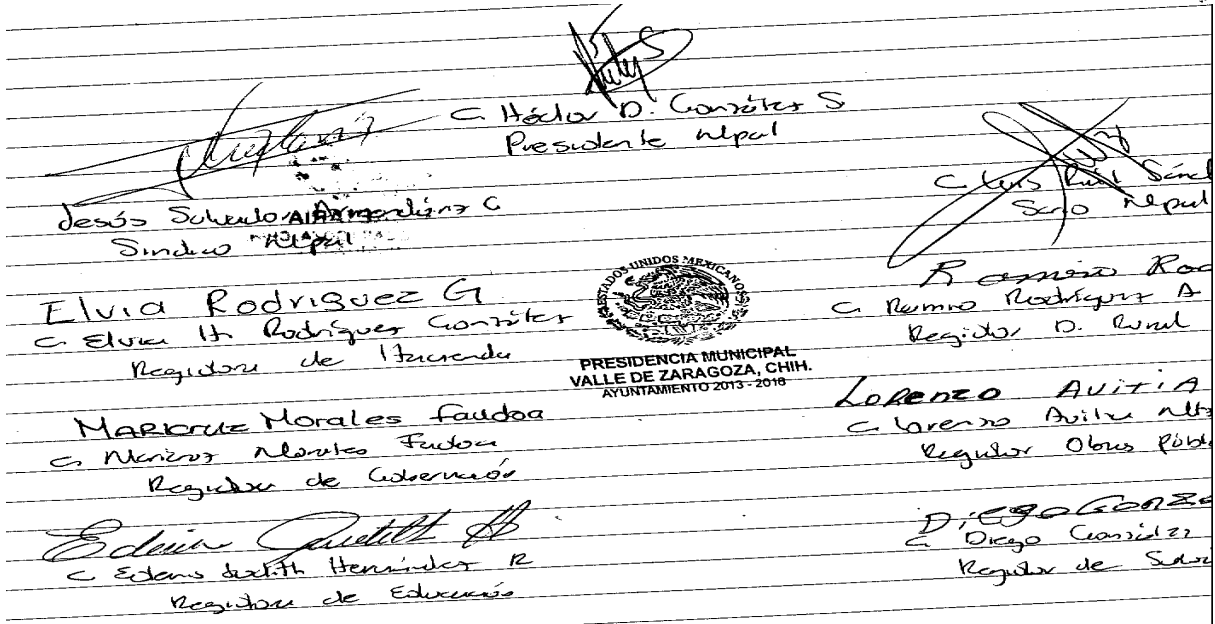 C. Héctor D. González S
Presidente Mpal
C. Luis Raúl Sánc
Srio Mpal
Jesús Salvador Armendáriz C
Sindico Mpal
Elvia Rodriguez G
C. Elvia H. Rodríguez González
Regidora de Hacienda
ESTADOS UNIDOS MEXICANOS
PRESIDENCIA MUNICIPAL
VALLE DE ZARAGOZA, CHIH.
AYUNTAMIENTO 2013 - 2016
Ramiro Rod
C. Ramiro Rodríguez A
Regidor D. Rural
Maricruz Morales faudoa
C. Maricruz Morales Faudoa
Regidora de Gobernación
Lorenzo Avitia
C. Lorenzo Avitia
Regidor Obras públ
Judith H
C. Judith Hernández R
Regidora de Educación
Diego Gonza
C. Diego González
Regidor de